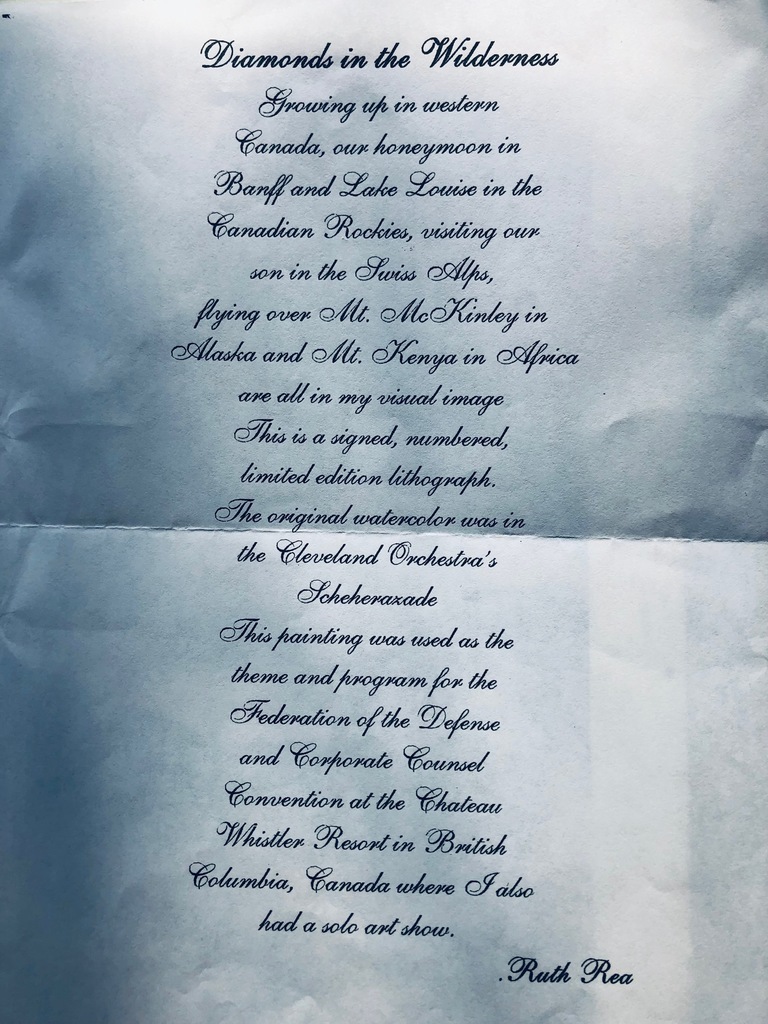 Diamonds in the Wilderness
Growing up in western
Canada, our honeymoon in
Banff and Lake Louise in the
Canadian Rockies, visiting our
son in the Swiss Alps,
flying over Mt. McKinley in
Alaska and Mt. Kenya in Africa
are all in my visual image
This is a signed, numbered,
limited edition lithograph.
The original watercolor was in
the Cleveland Orchestra's
Scheherazade
This painting was used as the
theme and program for the
Federation of the Defense
and Corporate Counsel
Convention at the Chateau
Whistler Resort in British
Columbia, Canada where I also
had a solo art show.
.Ruth Rea